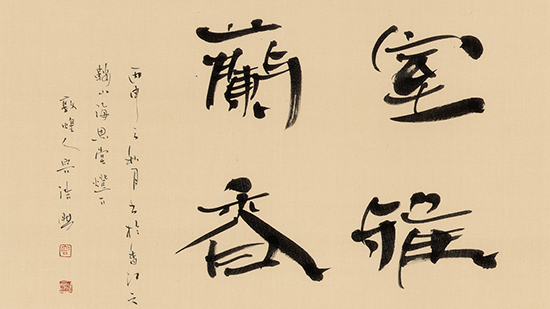 室雅
蘭香
丙申之秋月書於香江之
山海思堂燈下
敦煌人